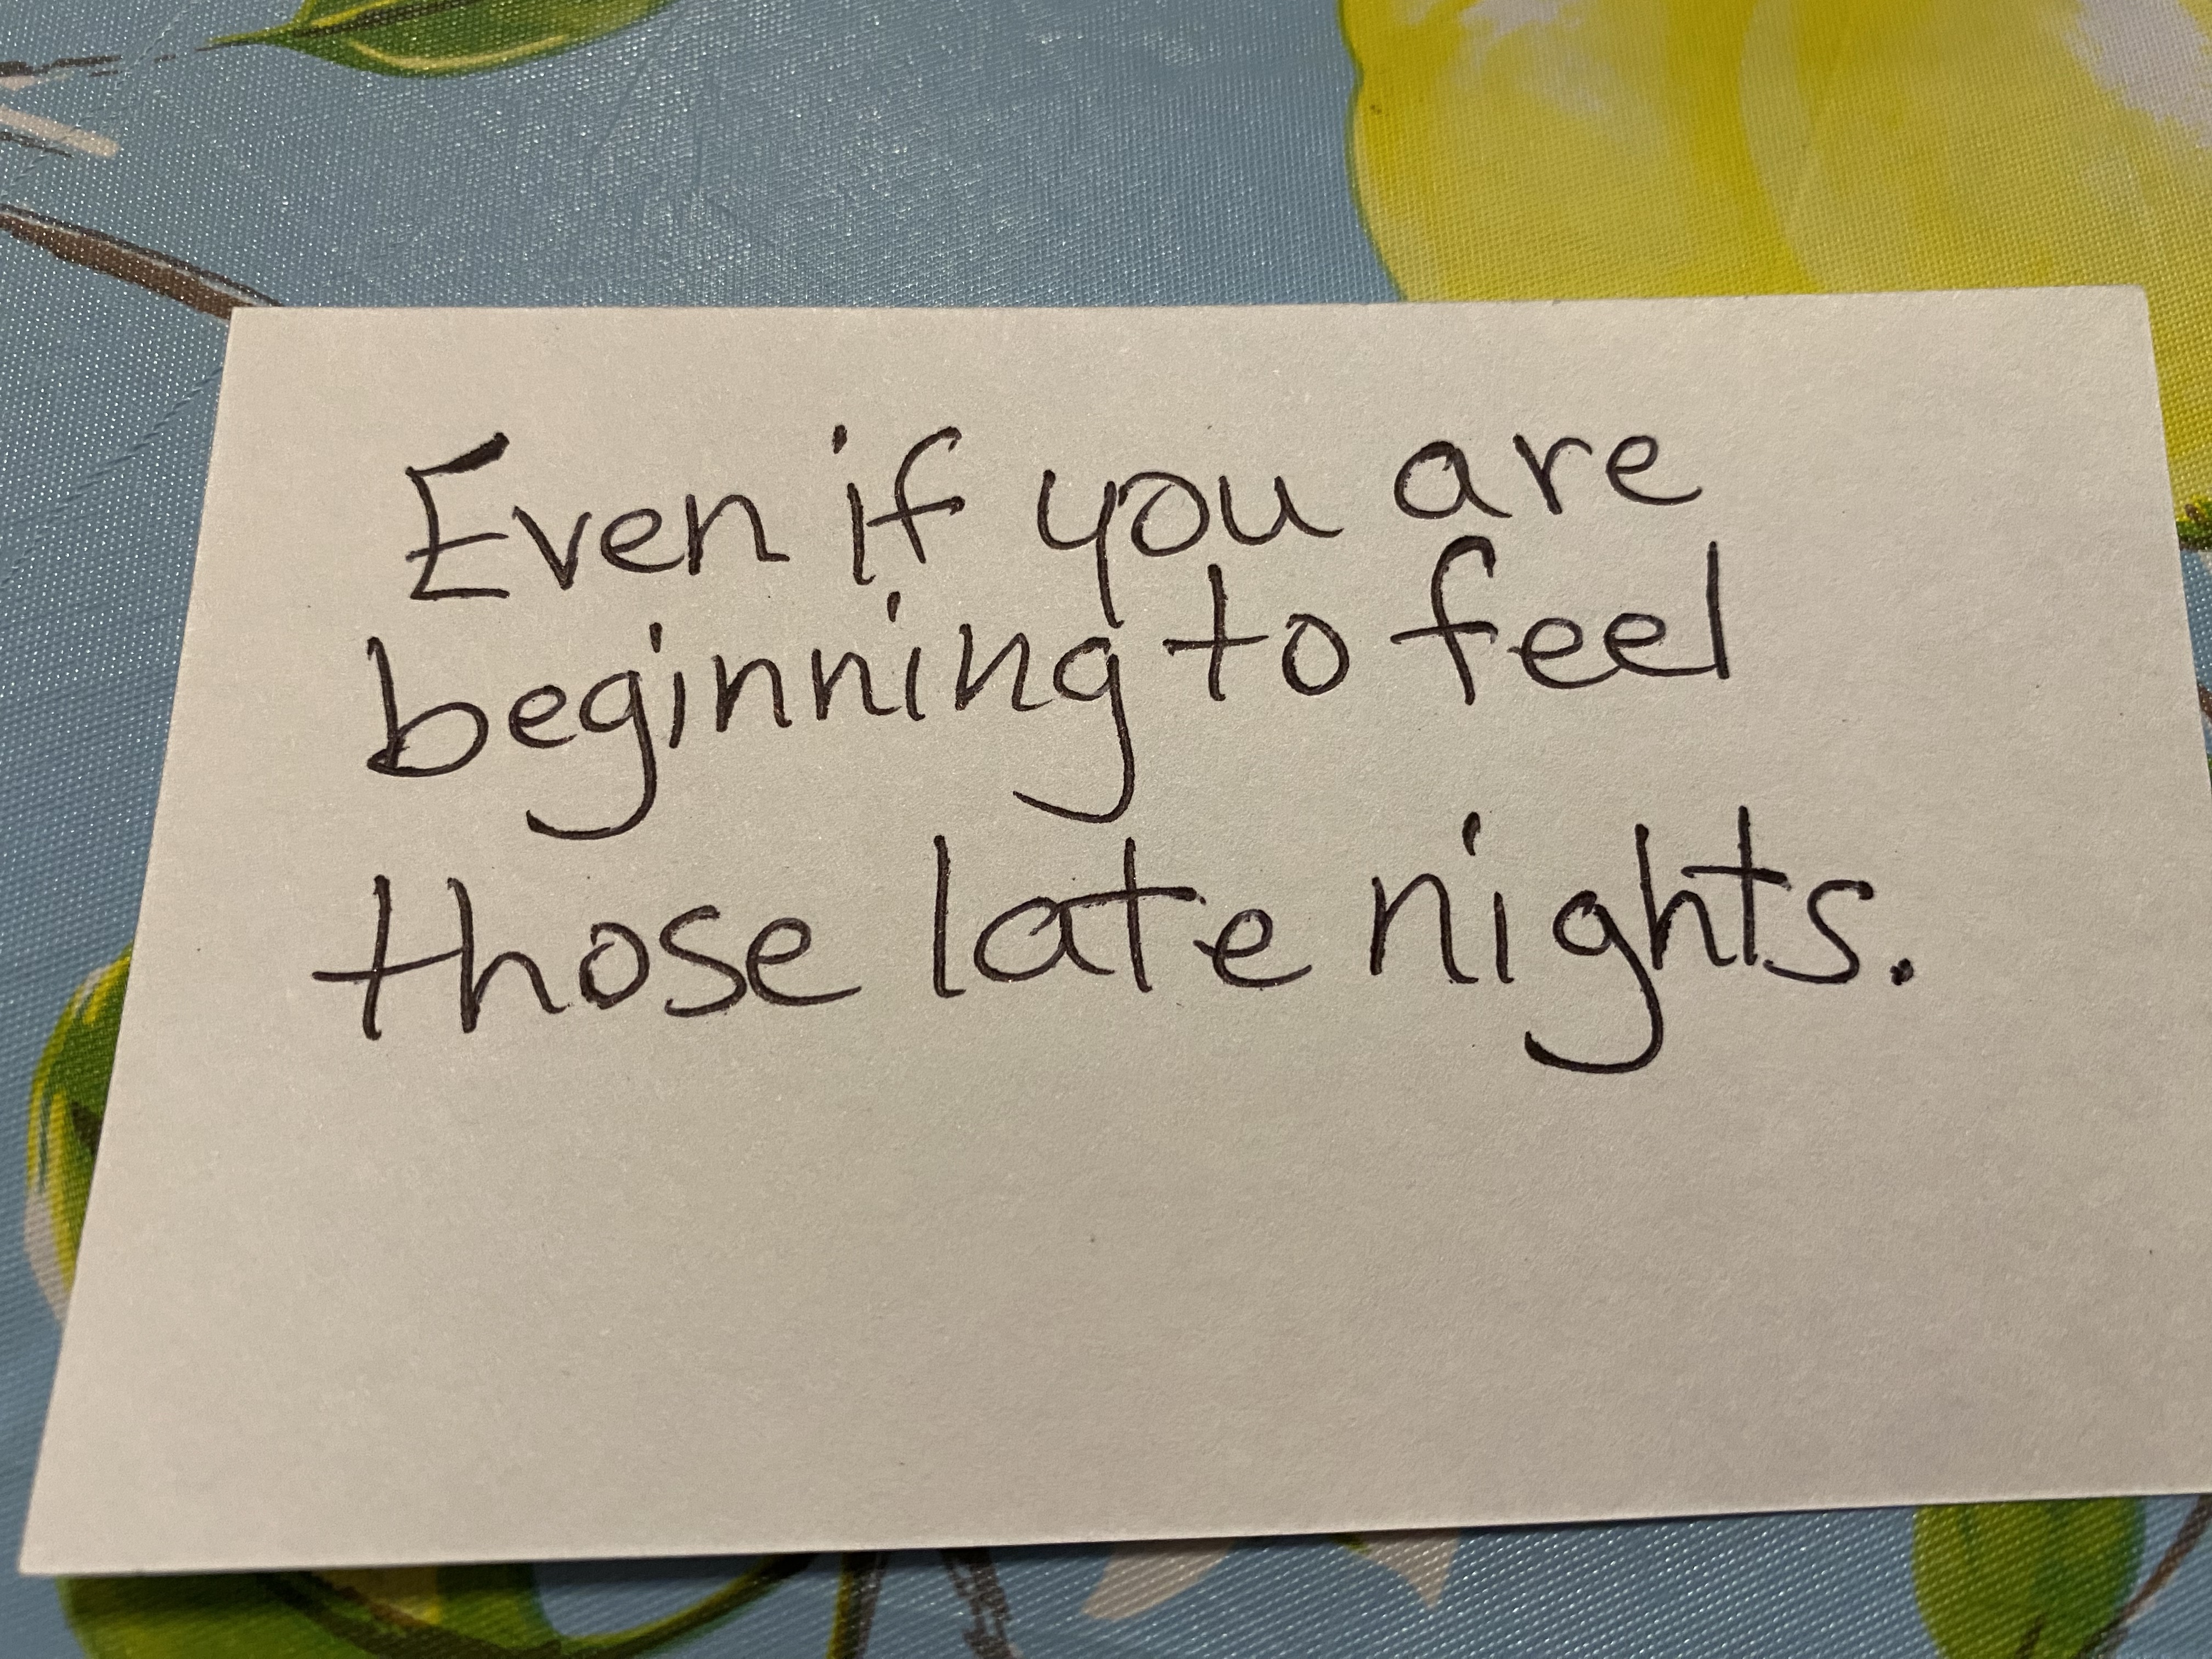 Even if you are
beginning to feel
those late nights.